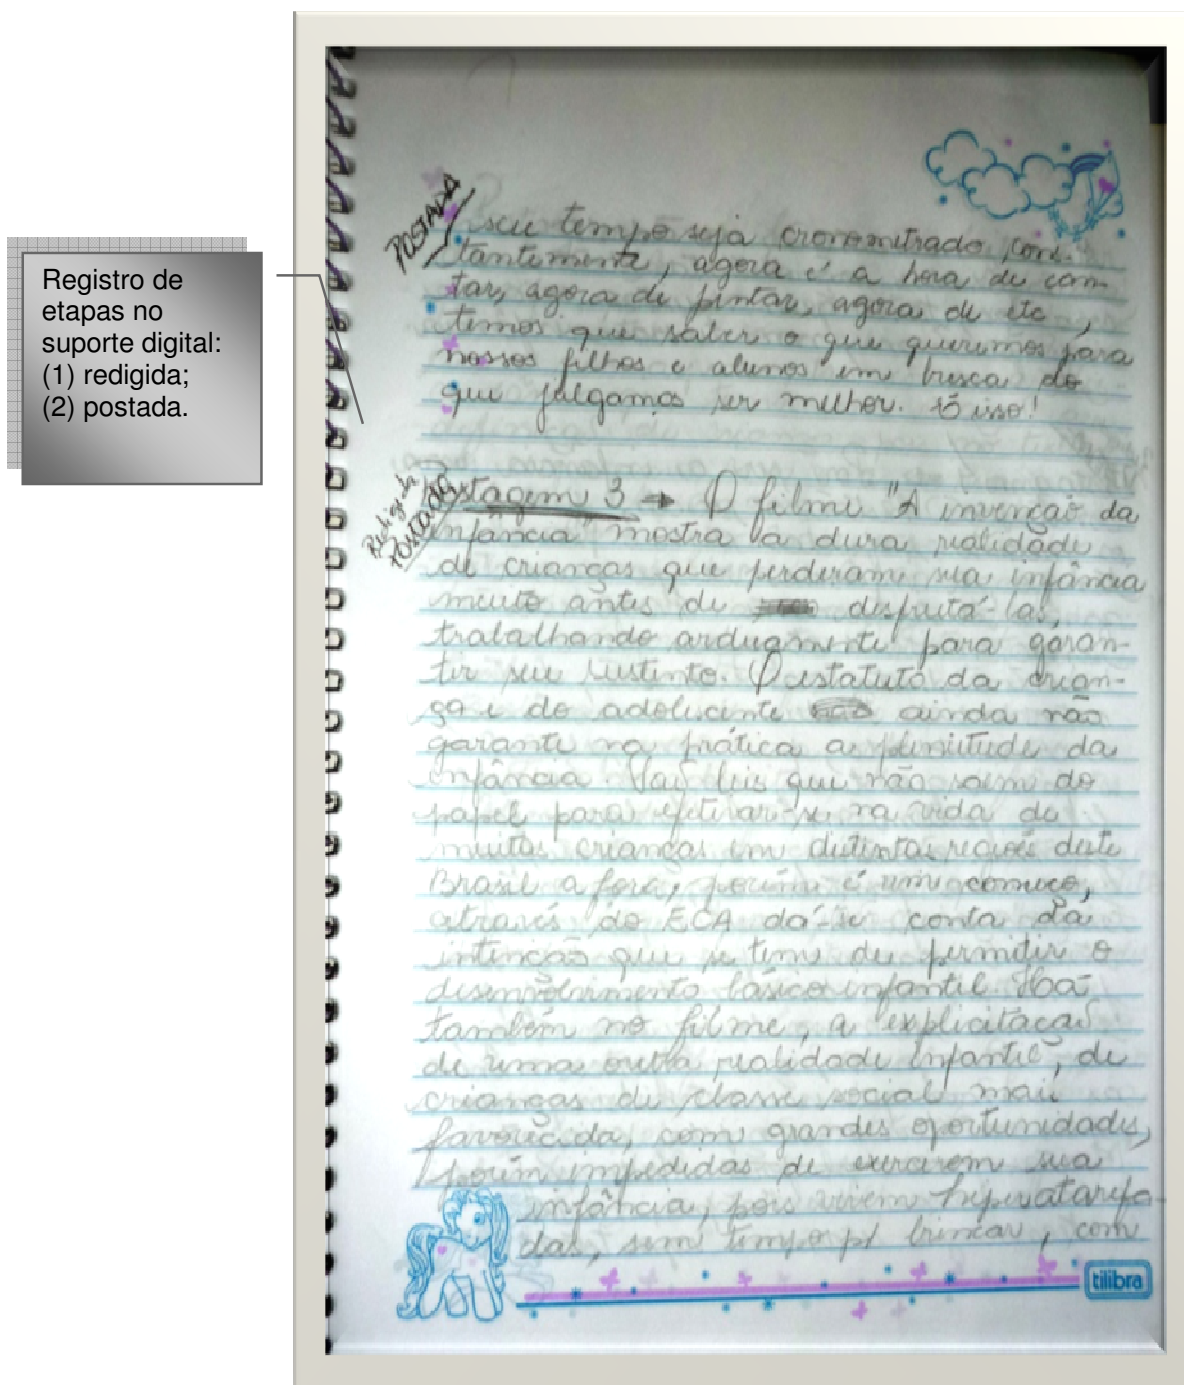 Registro de
etapas no
suporte digital:
(1) redigida;
(2) postada.
POSTADA
seu tempo seja cronometrado cons-
tantemente, agora é a hora de can-
tar, agora de pintar, agora de etc,
temos que saber o que queremos para
nossos filhos e alunos em busca do
que julgamos ser melhor. É isso!
Redigida
POSTADA
Postagem 3 → O filme "A invenção da
infância" mostra a dura realidade
de crianças que perderam sua infância
muito antes de disfrutá-las,
trabalhando arduamente para garan-
tir seu sustento. O estatuto da crian-
ça e do adolescente ainda não
garante na prática a plenitude da
infância. leis que não saem do
papel para efetivar-se na vida de
muitas crianças em distintas regiões deste
Brasil a fora, porém é um começo,
através do ECA dá-se conta da
intenção que se tem de permitir o
desenvolvimento básico infantil. Há
também no filme, a explicitação
de uma outra realidade infantil, de
crianças de classe social mais
favorecida, com grandes oportunidades,
porém impedidas de exercerem sua
infância, pois vivem hiperatarefa-
das, sem tempo p/ brincar, com
tilibra